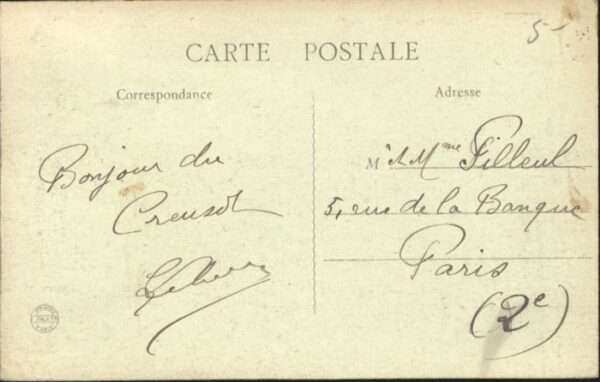 5-
CARTE POSTALE
Correspondance
Bonjour du
Creusot
Adresse
M. et Mme Filleul
5, rue de la Banque
Paris
(2e)